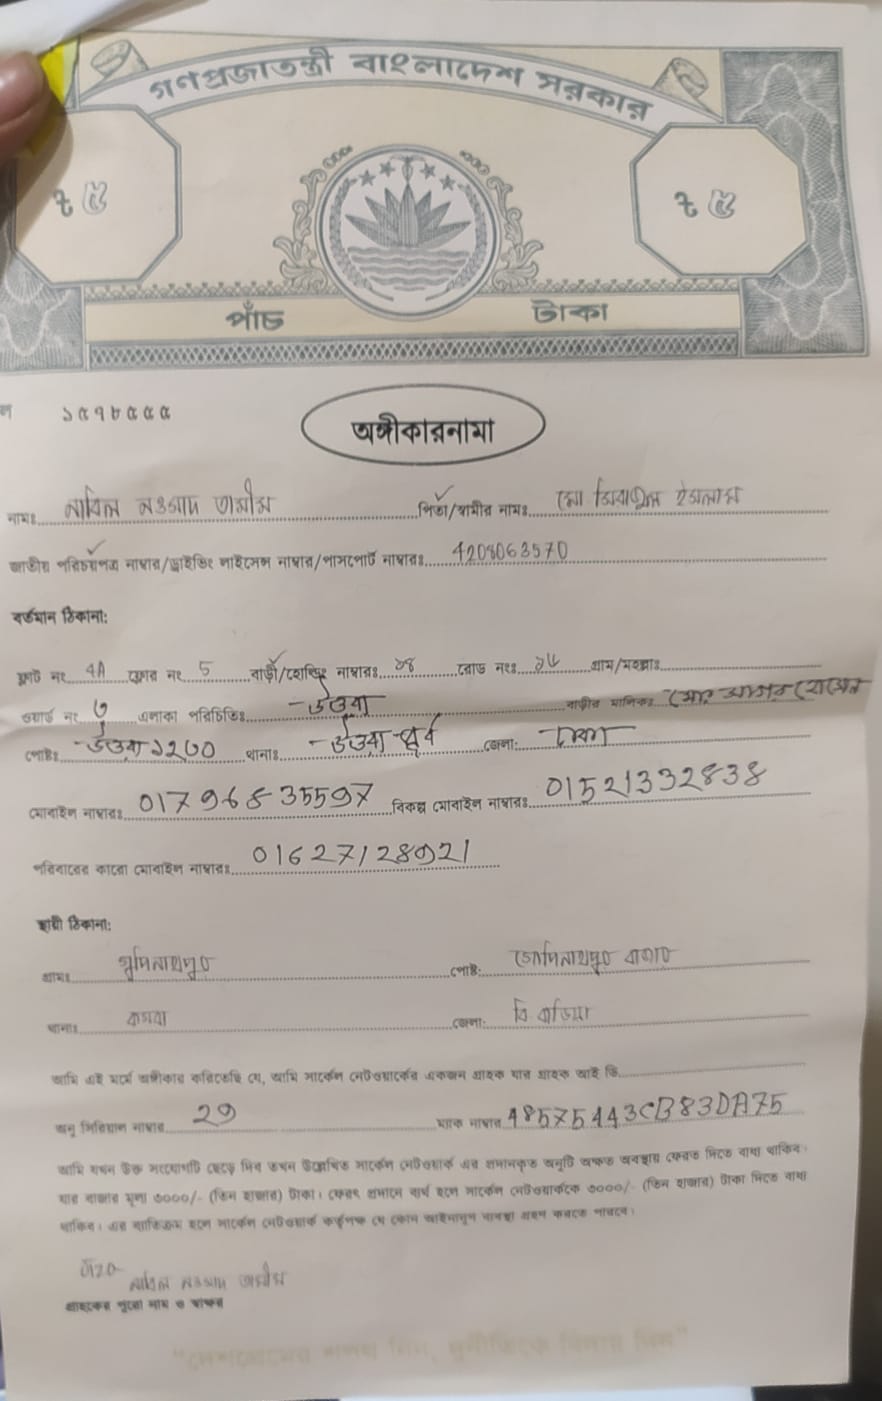 গণপ্রজাতন্ত্রী বাংলাদেশ সরকার
৳ ৫ ৳ ৫
পাঁচ টাকা
১৫৭৮৫৫৫
অঙ্গীকারনামা
নামঃ নাবিল নওসাদ তামীম পিতা/স্বামীর নামঃ মো সিরাজুল ইসলাম
জাতীয় পরিচয়পত্র নাম্বার/ড্রাইভিং লাইসেন্স নাম্বার/পাসপোর্ট নাম্বারঃ 4208063570
বর্তমান ঠিকানা:
ফ্লাট নং 4A ফ্লোর নং 5 বাড়ী/হোল্ডিং নাম্বারঃ রোড নংঃ গ্রাম/মহল্লাঃ
ওয়ার্ড নং এলাকা পরিচিতিঃ উত্তরা বাড়ীর মালিকঃ
পোষ্টঃ উত্তরা ১২৩০ থানাঃ উত্তরা পূর্ব জেলা: ঢাকা
মোবাইল নাম্বারঃ 01796835597 বিকল্প মোবাইল নাম্বারঃ 01521332838
পরিবারের কারো মোবাইল নাম্বারঃ
স্থায়ী ঠিকানা:
গ্রামঃ পোষ্ট: গোপিনাথপুর বাজার
থানাঃ কসবা জেলা: বি বাড়িয়া
আমি এই মর্মে অঙ্গীকার করিতেছি যে, আমি সার্কেল নেটওয়ার্কের একজন গ্রাহক যার গ্রাহক আই ডি
অনু সিরিয়াল নাম্বার 29 ম্যাক নাম্বার 48575443CB83DA75
আমি যখন উক্ত সংযোগটি ছেড়ে দিব তখন উল্লেখিত সার্কেল নেটওয়ার্ক এর প্রদানকৃত অনুটি অক্ষত অবস্থায় ফেরত দিতে বাধ্য থাকিব।
যার বাজার মূল্য ৩০০০/- (তিন হাজার) টাকা। ফেরৎ প্রদানে ব্যর্থ হলে সার্কেল নেটওয়ার্ককে ৩০০০/- (তিন হাজার) টাকা দিতে বাধ্য
থাকিব। এর ব্যতিক্রম হলে সার্কেল নেটওয়ার্ক কর্তৃপক্ষ যে কোন আইনানুগ ব্যবস্থা গ্রহন করতে পারবে।
নাবিল নওসাদ তামীম
গ্রাহকের পুরো নাম ও স্বাক্ষর